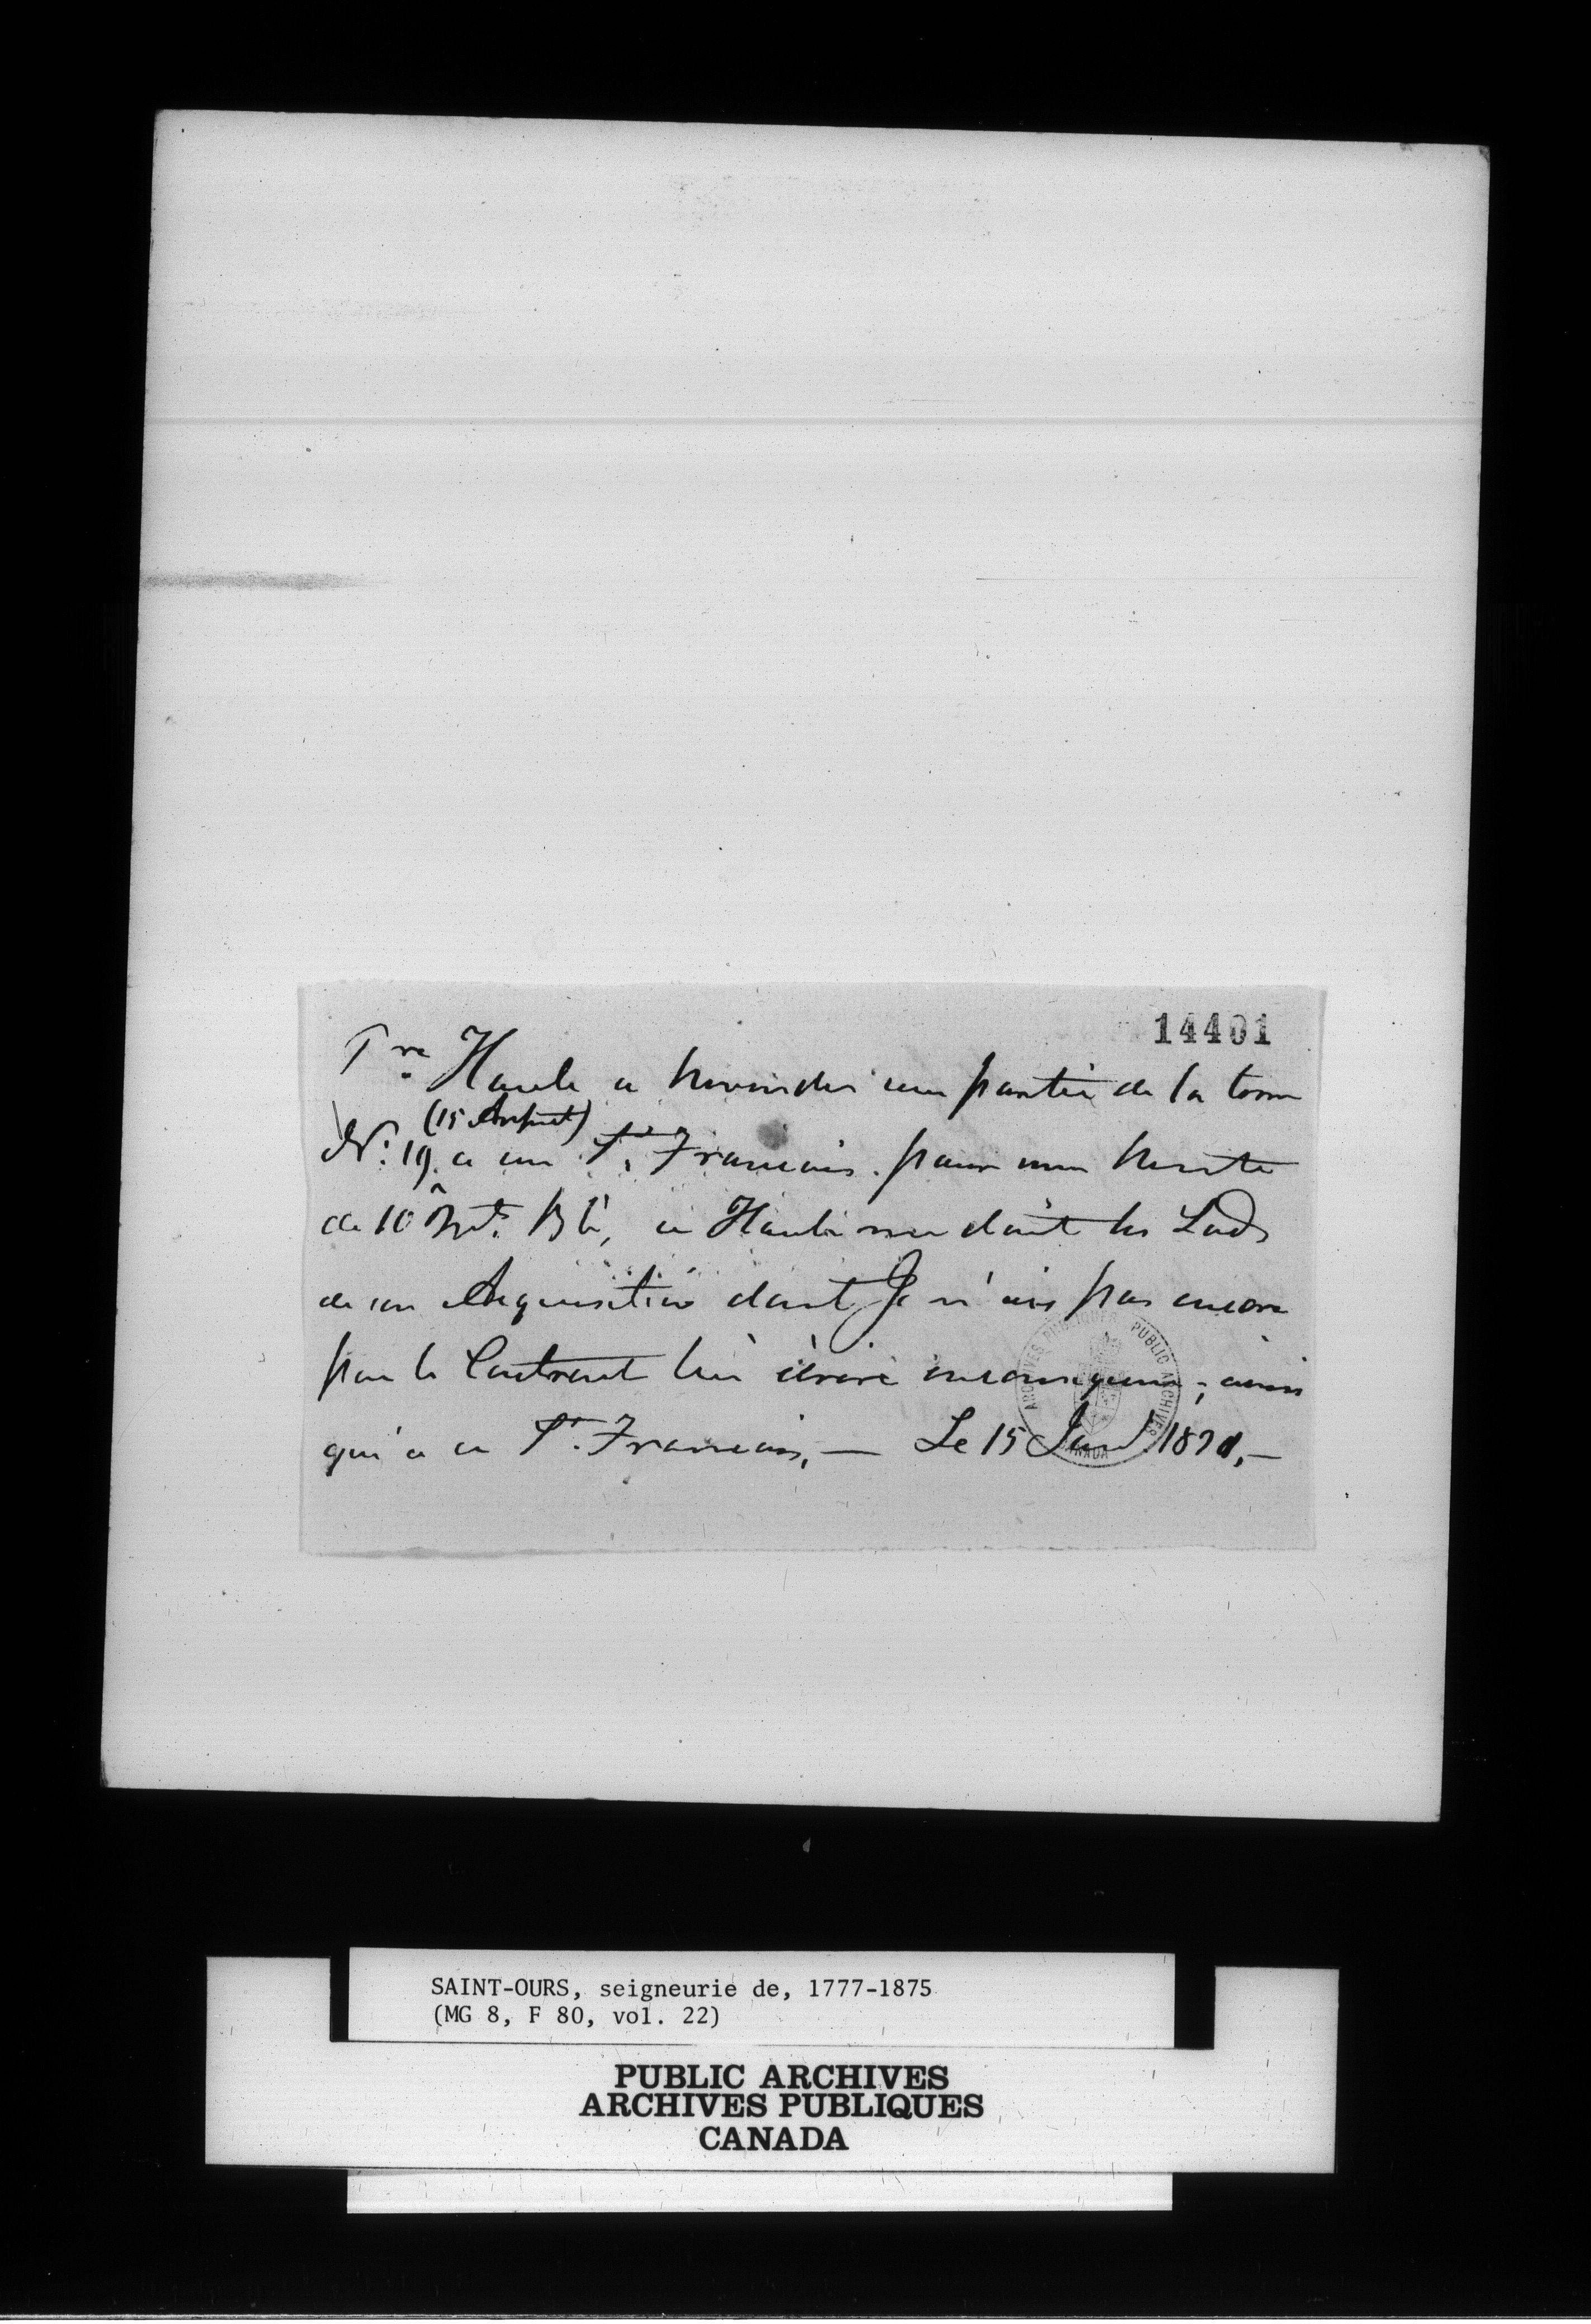 14401
Pre. Haule a revendu une partie de la terre
(15 Arpent)
No. 19. a un St. Francois. pour une rente
de 10 Mts. Blé, ce Haule me doit les Lods
de son Acquisition dont Je n'ais pas encore
pris le Contract lui écrire en consequence; ainsi
qu'a ce St. Francois, — Le 15 Janv. 1821, —
ARCHIVES PUBLIQUES PUBLIC ARCHIVES
CANADA
SAINT-OURS, seigneurie de, 1777-1875
(MG 8, F 80, vol. 22)
PUBLIC ARCHIVES
ARCHIVES PUBLIQUES
CANADA